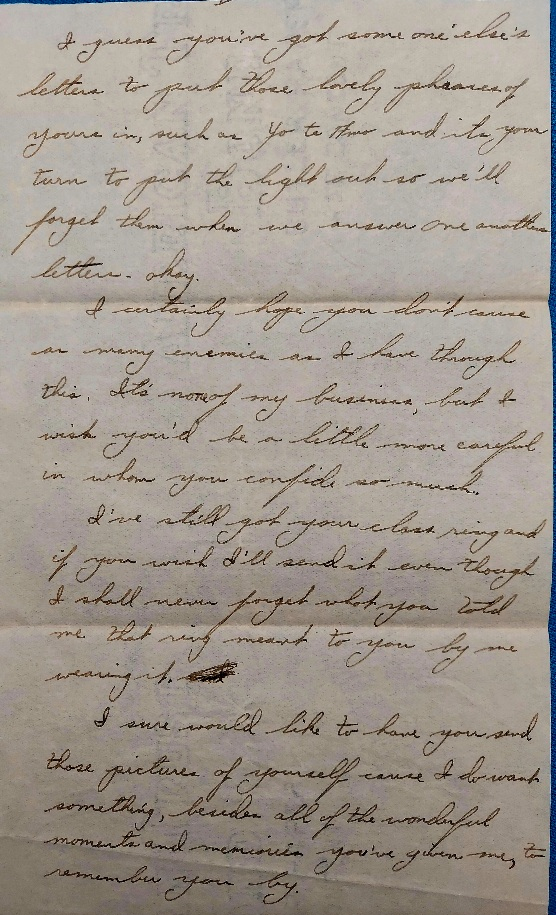 I guess you've got some one else's
letters to put those lovely phrases of
yours in, such as Yo te Amo and its your
turn to put the light out so we'll
forget them when we answer one another
letters. okay.
I certainly hope you don't cause
as many enemies as I have through
this. It's none of my business, but I
wish you'd be a little more careful
in whom you confide so much.
I've still got your class ring and
if you wish I'll send it even though
I shall never forget what you told
me that ring meant to you by me
wearing it.
I sure would like to have you send
those pictures of yourself cause I do want
something, besides all of the wonderful
moments and memories you've given me, to
remember you by.